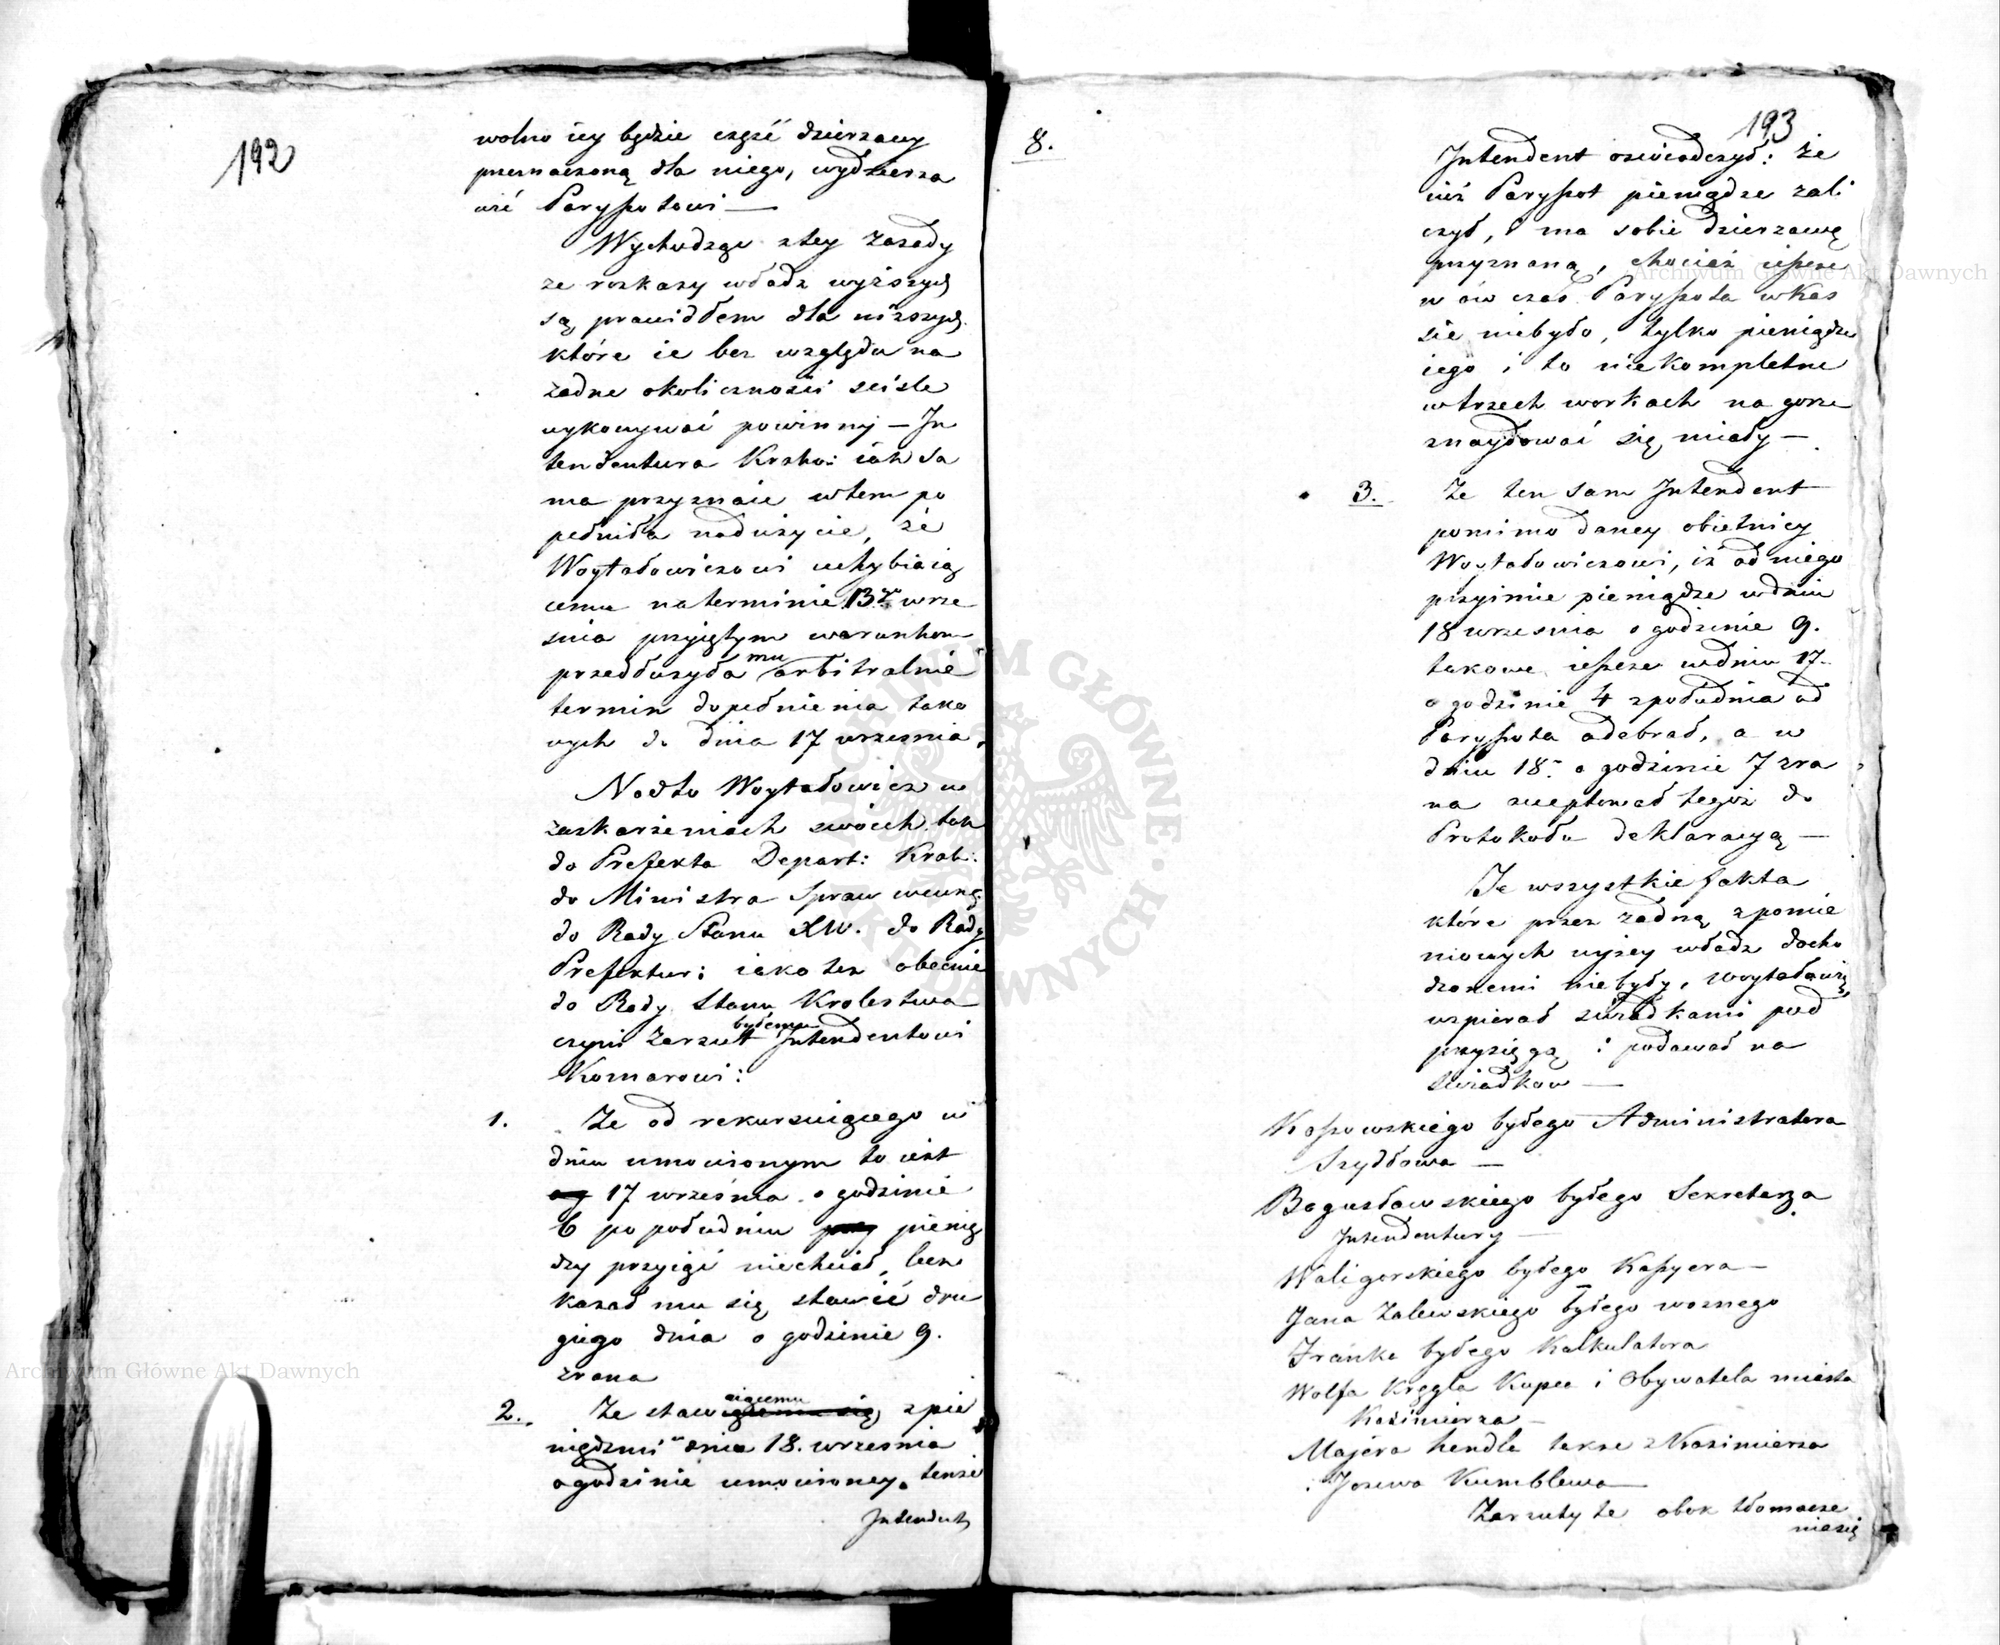 192
wolno iey będzie część dzierzawy
przeznaczoną dla niego, wydzierza
wić Paryssotowi —
Wychodząc z tey zasady
ze rozkazy władz wyższych
są prawidłem dla niższych
które ie bez względu na
żadne okoliczności ściśle
wykonywać powinny — In
tendentura Krako: iak sa
ma przyznaie w tem po
pełniła nadużycie, że
Woytałowiczowi uchybiaią
cemu na terminie 13 wrze
śnia przyiętym warunkom
przedłużyła mu arbitralnie
termin dopełnienia tako
wych do dnia 17 września.
Nadto Woytałowicz w
zaskarżeniach swoich tak
do Prefekta Depart: Krak:
do Ministra Spraw wewnę:
do Rady Stanu XW. do Rady
Prefektur: iako też obecnie
do Rady Stanu Krolestwa
czyni zarzut byłemu Intendentowi
Komarowi:
1. Że od rekursuiącego w
dniu umowionym to iest
17 września o godzinie
6 po południu pienię
dzy przyiąć niechciał, lecz
kazał mu się stawić dru
giego dnia o godzinie 9.
zrana
2. Że stawaiącemu z pie
niędzmi dnia 18. września
o godzinie umowioney, tenże
Intendent
193
8.
Intendent oświadczył: że
iuż Paryssot pieniądze zali
czył, i ma sobie dzierzawę
przyznaną, chociaż iessze
w ów czas Paryssota w Kas
sie niebyło, tylko pieniądze
iego i to niekompletne
w trzech workach na gorze
znaydować się miały —
3. Że ten sam Intendent
pomimo daney obietnicy
Woytałowiczowi, iż od niego
przyimie pieniądze w dniu
18 września o godzinie 9.
takowe iessze w dniu 17.
o godzinie 4 z południa od
Paryssota odebrał, a w
dniu 18. o godzinie 7 zra
na akceptował tegoż do
Protokołu deklaracyą —
Te wszystkie fakta
które przez żadną z pomie
nionych wyżey władz docho
dzonemi niebyły, Woytałowicz
wspierał świadkami pod
przysięgą i podawał na
świadkow —
Kossowskiego byłego Administratora
Szydłowa —
Bogusławskiego byłego Sekretarza
Intendentury —
Waligorskiego byłego Kassyera —
Jana Zalewskiego byłego woznego
Franke byłego Kalkulatora
Wolfa Kręgla Kupca i Obywatela miasta
Kazimierza —
Majera Hendla także z Kazimierza
i Jozewa Kumblewa —
Zarzuty te obok tłomacze
nia się
Archiwum Główne Akt Dawnych
Archiwum Główne Akt Dawnych
ARCHIWUM GŁÓWNE AKT DAWNYCH